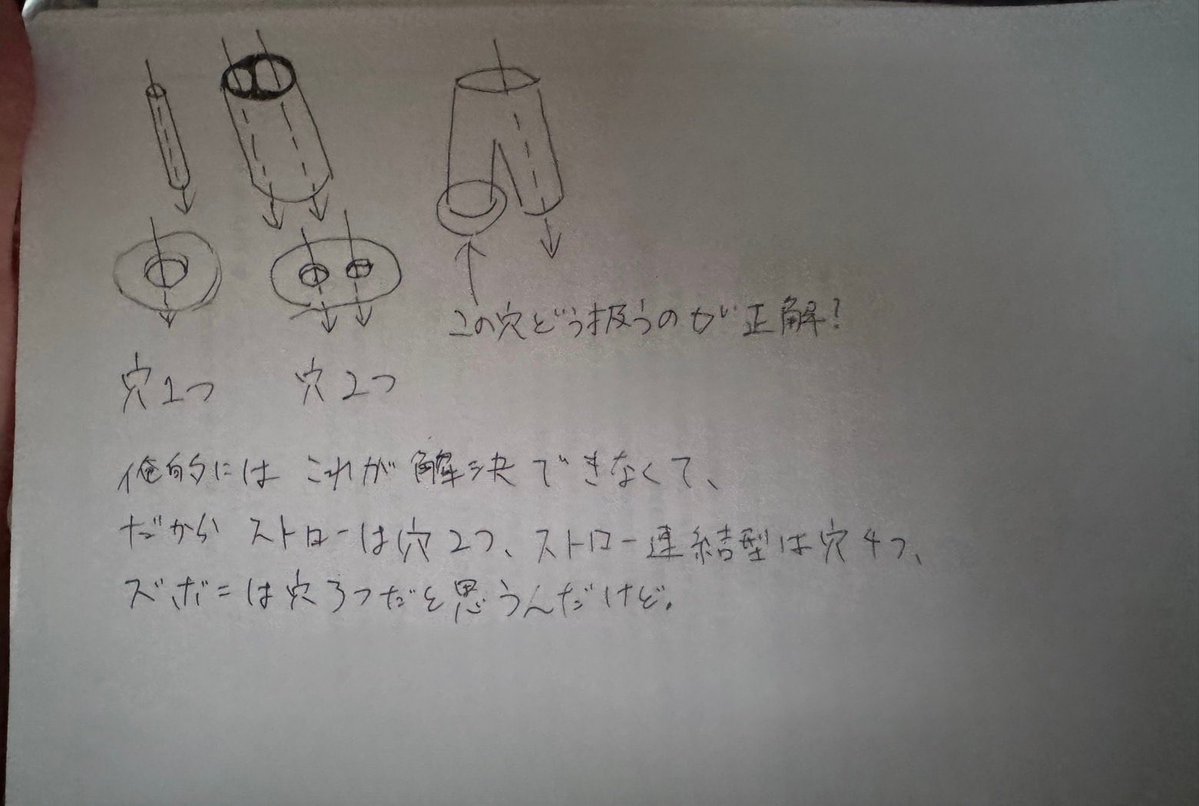 この穴どう扱うのが正解?
穴1つ 穴2つ
俺的には これが解決できなくて、
だから ストローは穴2つ、ストロー連結型は穴4つ、
ズボンは穴3つだと思うんだけど。